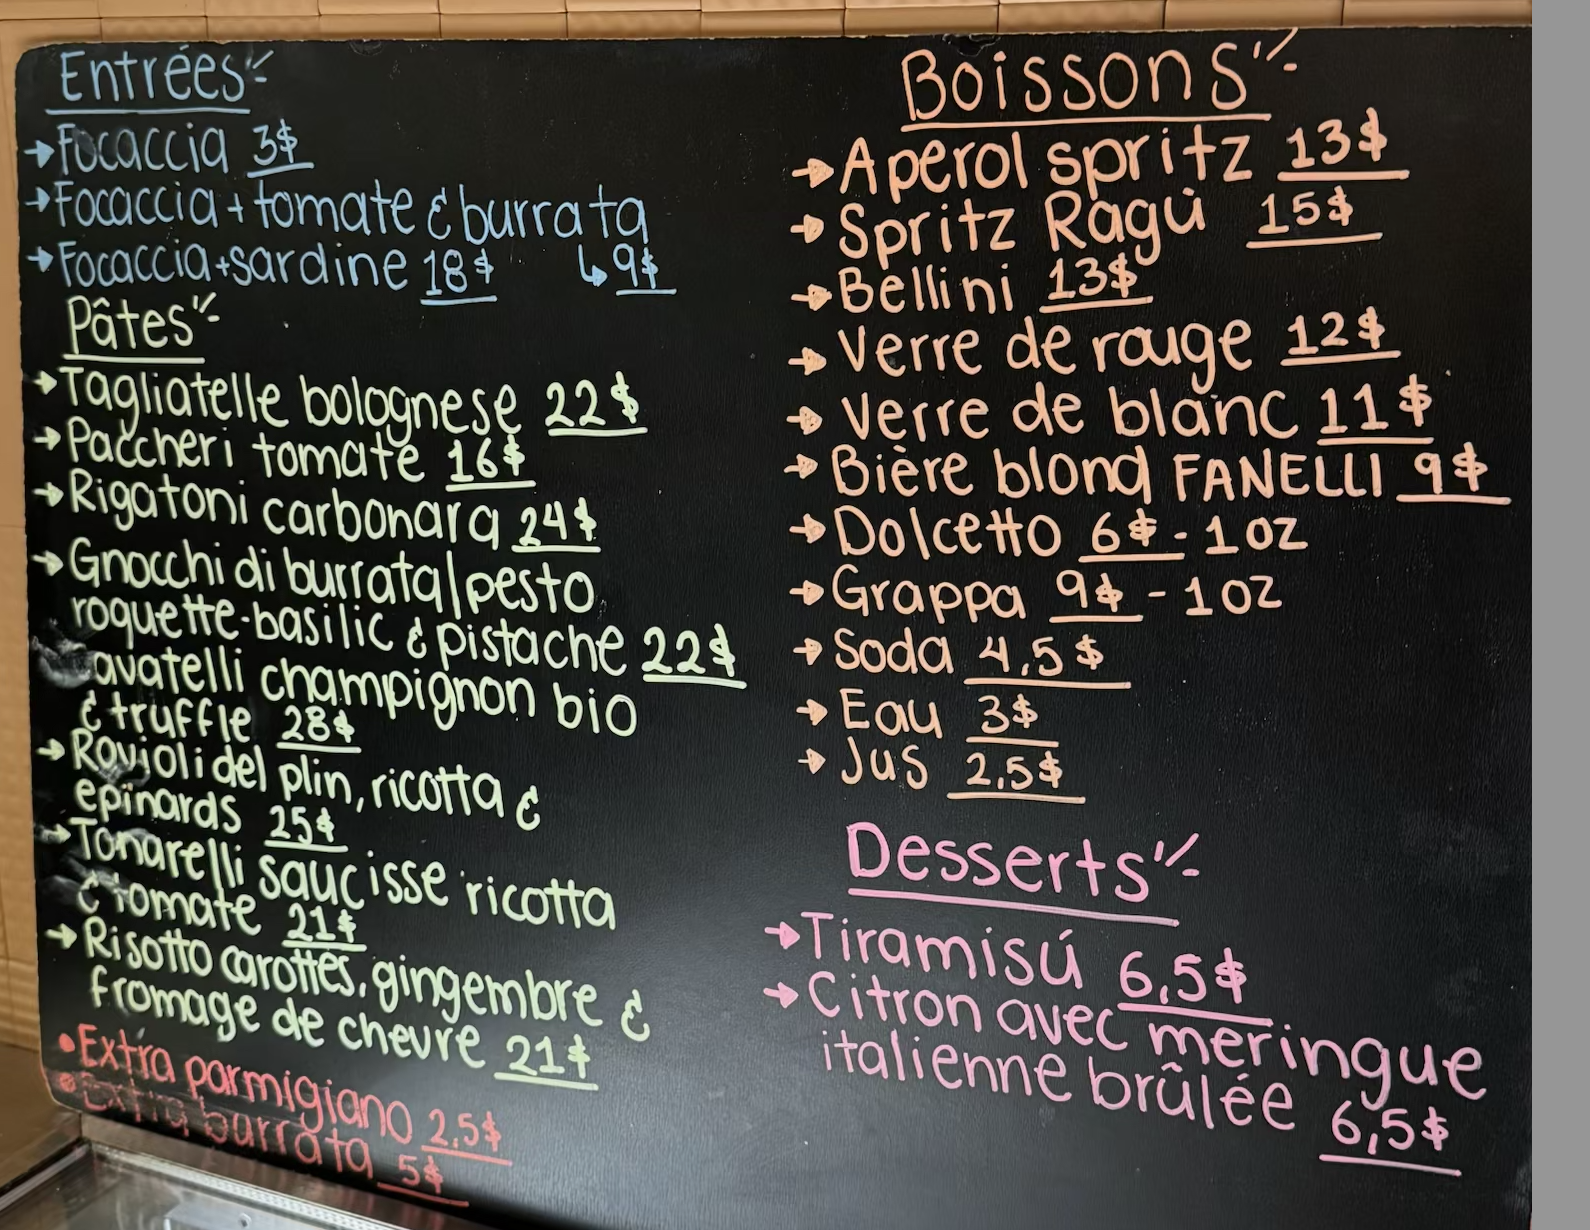 Entrées
→ Focaccia 3$
→ Focaccia + tomate & burrata
↳ 9$
→ Focaccia + sardine 18$
Pâtes
→ Tagliatelle bolognese 22$
→ Paccheri tomate 16$
→ Rigatoni carbonara 24$
→ Gnocchi di burrata | pesto
roquette-basilic & pistache 22$
avatelli champignon bio
& truffle 28$
→ Ravioli del plin, ricotta &
epinards 25$
→ Tonarelli saucisse ricotta
& tomate 21$
→ Risotto carottes, gingembre &
fromage de chevre 21$
• Extra parmigiano 2.5$
• Extra burrata 5$
Boissons
→ Aperol spritz 13$
→ Spritz Ragù 15$
→ Bellini 13$
→ Verre de rouge 12$
→ Verre de blanc 11$
→ Bière blond FANELLI 9$
→ Dolcetto 6$ - 1oz
→ Grappa 9$ - 1oz
→ Soda 4,5$
→ Eau 3$
→ Jus 2,5$
Desserts
→ Tiramisú 6,5$
→ Citron avec meringue
italienne brûlée 6,5$